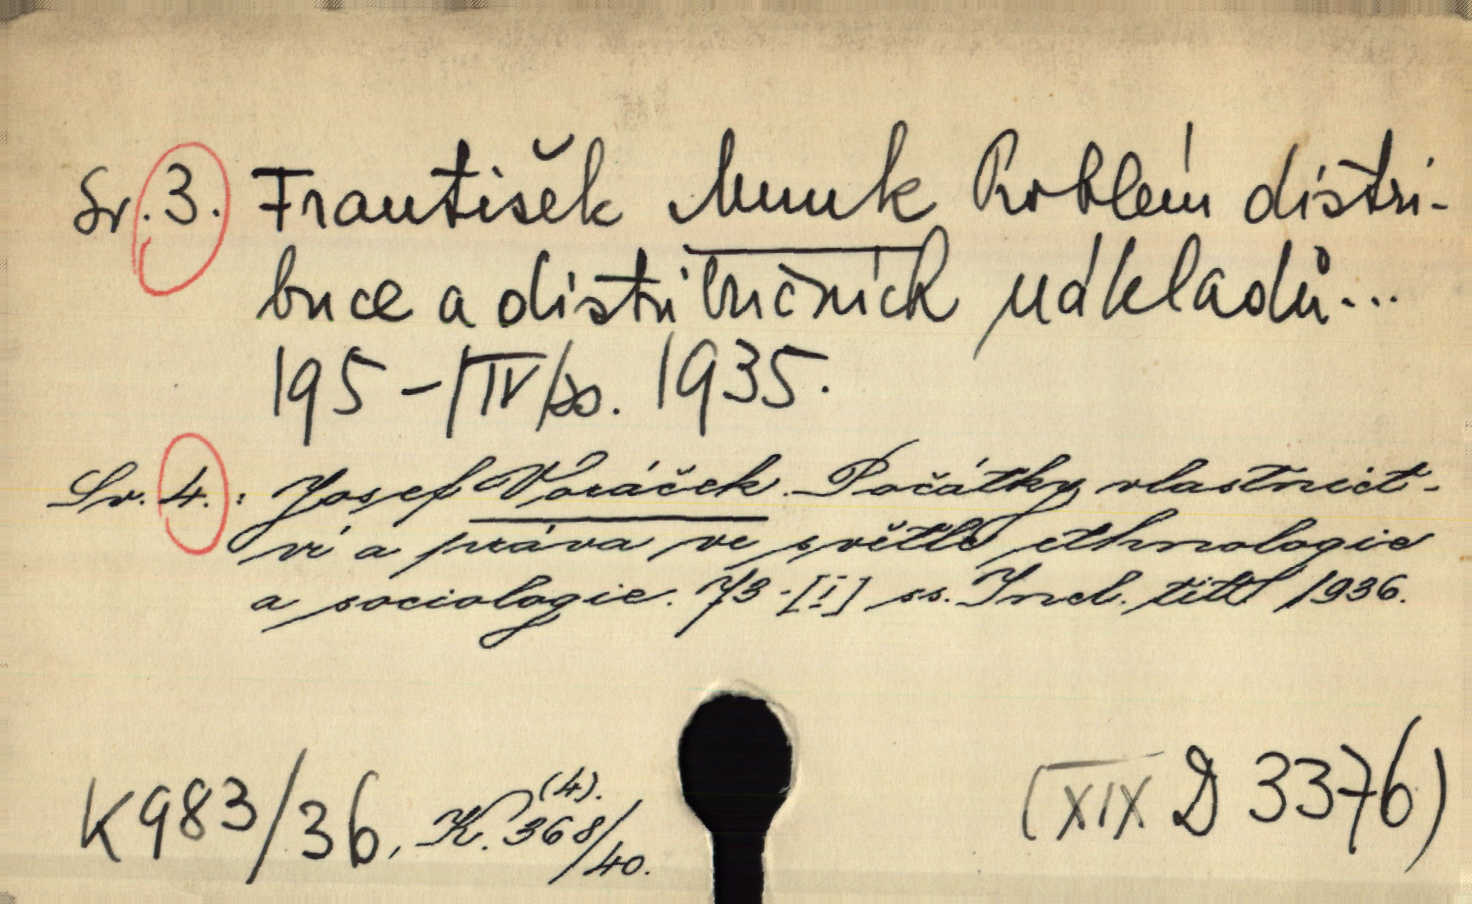 Sv. 3. František Munk Problém distri-
buce a distribučních nákladů...
195 - |IV| ss. 1935.
Sv. 4. : Josef Voráček. Počátky vlastnict-
ví a práva ve světle ethnologie
a sociologie. 73 - [I] ss. Incl. titl 1936.
K 983/36, K. 368/40. (4).
(XIX D 3376)